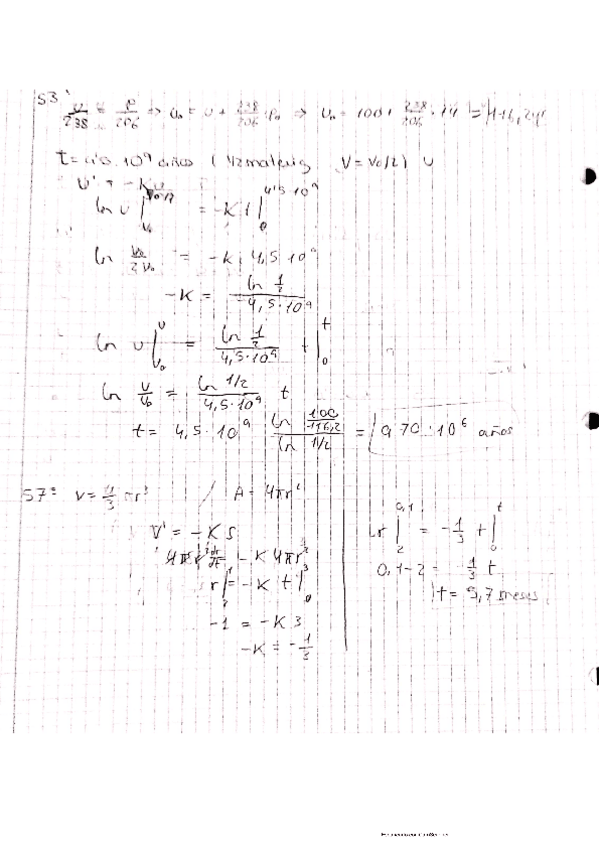 53
U/238 = P/206 ⇒ U₀ = U + 238/206 · P₀ ⇒ U₀ = 100 + 238/206 · 14 = 116,2 gr
t = 4,5 · 10⁹ años ( 1/2 V = V₀/2) U
U' = -KU
ln U |_{U₀}^{U₀/2} = -K t |_0^{4,5·10⁹}
ln U₀/2U₀ = -K 4,5 · 10⁹
-K = ln 1/2 / -4,5 · 10⁹
ln U |_{U₀}^{U} = ln 1/2 / 4,5 · 10⁹ t |_0^t
ln U/U₀ = ln 1/2 / 4,5 · 10⁹ t
t = 4,5 · 10⁹ ln 100/116,2 / ln 1/2 = 970 · 10⁶ años
57: V = 4/3 πr³ / A = 4πr²
V' = -K S
4πr² dr/dt = -K 4πr²
r |_2^1 = -K t |_0^3
-1 = -K 3
-K = -1/3
r |_2^{0,1} = -1/3 t |_0^t
0,1 - 2 = -1/3 t
t = 5,7 meses